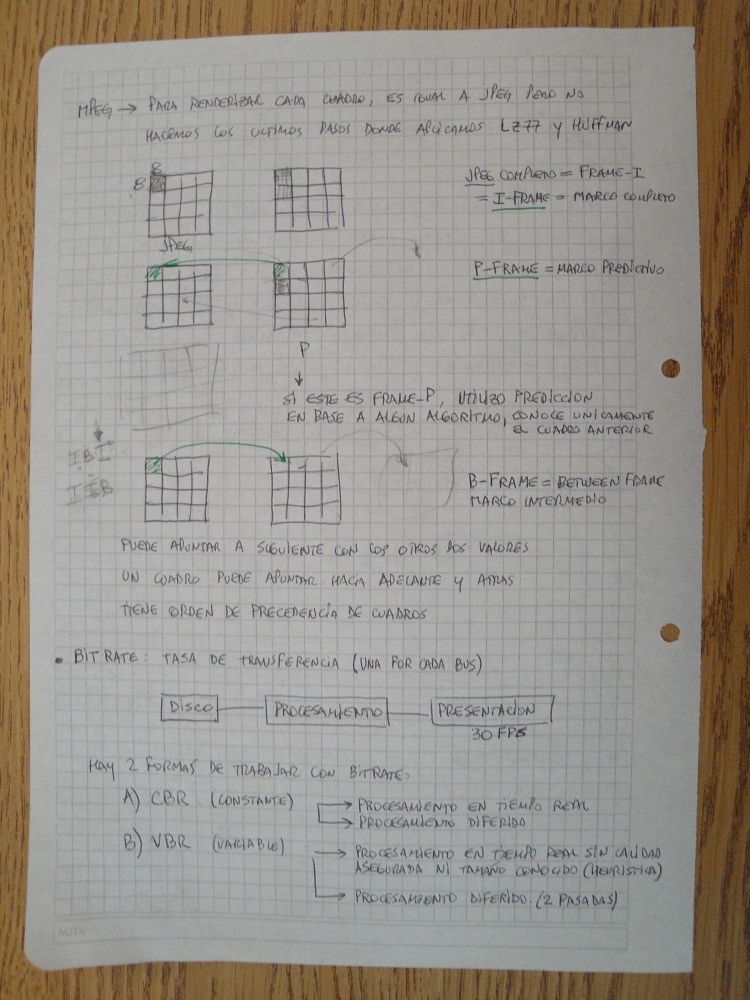 MPEG → PARA RENDERIZAR CADA CUADRO, ES IGUAL A JPEG PERO NO
HACEMOS LOS ULTIMOS PASOS DONDE APLICAMOS LZ77 Y HUFFMAN
8
8
JPEG COMPLETO = FRAME-I
= I-FRAME = MARCO COMPLETO
JPEG
P-FRAME = MARCO PREDICTIVO
P
↓
SI ESTE ES FRAME-P, UTILIZO PREDICCION
EN BASE A ALGUN ALGORITMO, CONOCE UNICAMENTE
EL CUADRO ANTERIOR
I B I
B-FRAME = BETWEEN FRAME
MARCO INTERMEDIO
PUEDE APUNTAR A SIGUIENTE CON LOS OTROS DOS VALORES
UN CUADRO PUEDE APUNTAR HACIA ADELANTE Y ATRAS
TIENE ORDEN DE PRECEDENCIA DE CUADROS
• BITRATE: TASA DE TRANSFERENCIA (UNA POR CADA BUS)
DISCO PROCESAMIENTO PRESENTACION
30 FPS
HAY 2 FORMAS DE TRABAJAR CON BITRATE:
A) CBR (CONSTANTE) → PROCESAMIENTO EN TIEMPO REAL
→ PROCESAMIENTO DIFERIDO
B) VBR (VARIABLE) → PROCESAMIENTO EN TIEMPO REAL SIN CALIDAD
ASEGURADA NI TAMAÑO CONOCIDO (HEURISTICA)
→ PROCESAMIENTO DIFERIDO. (2 PASADAS)
NOTA